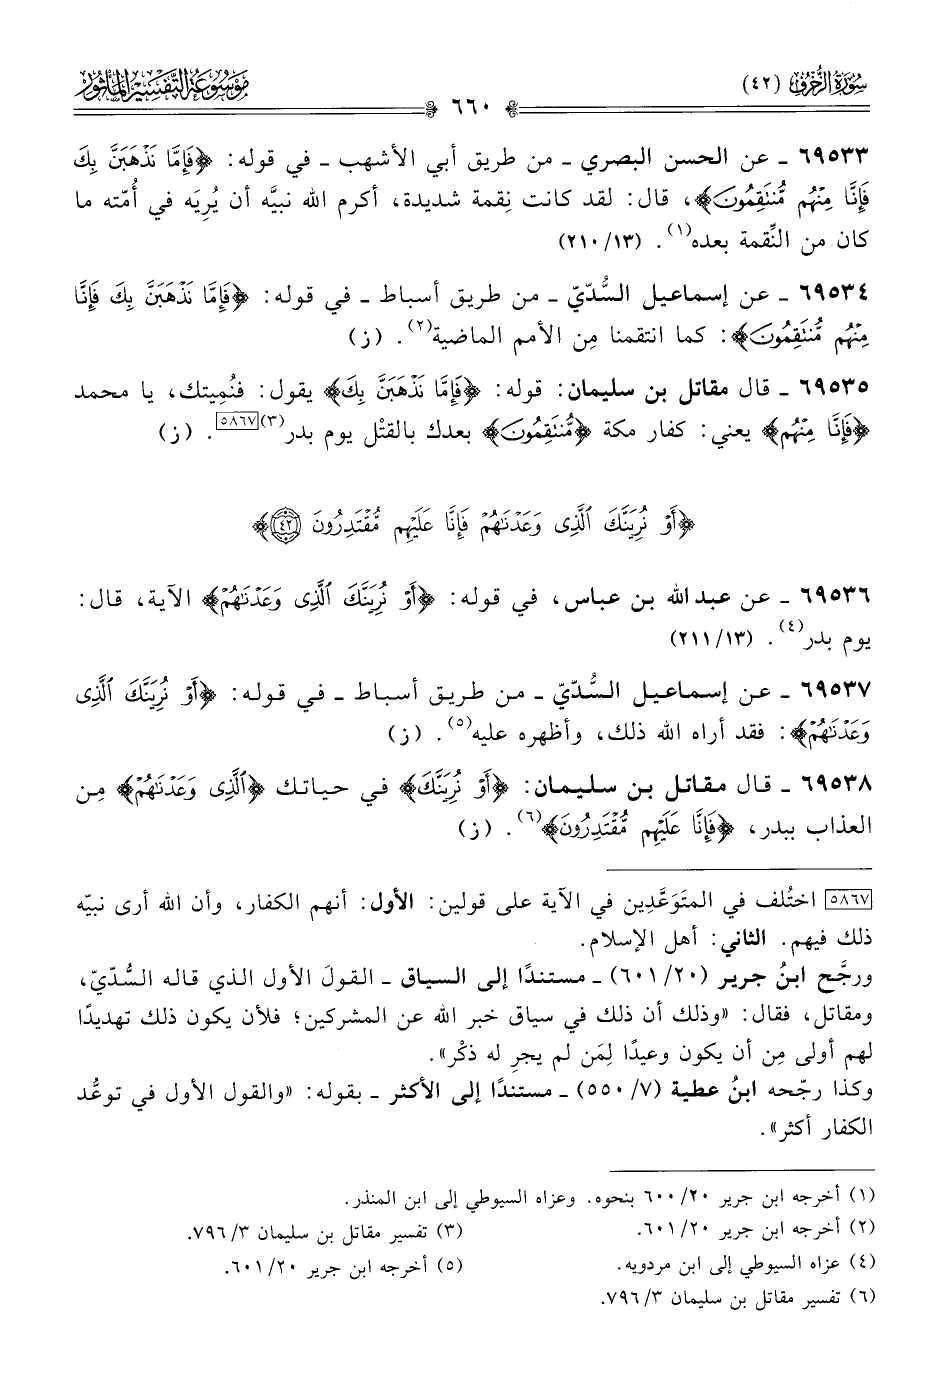 سورة الزخرف (٤٢)
موسوعة التفسير المأثور
٦٦٠
٦٩٥٣٣ ـ عن الحسن البصري ـ من طريق أبي الأشهب ـ في قوله: ﴿فَإِمَّا نَذْهَبَنَّ بِكَ
فَإِنَّا مِنْهُم مُّنتَقِمُونَ﴾، قال: لقد كانت نِقمة شديدة، أكرم الله نبيَّه أن يُرِيَه في أُمّته ما
كان من النِّقمة بعده(١). (٢١٠/١٣)
٦٩٥٣٤ ـ عن إسماعيل السُّدّيّ ـ من طريق أسباط ـ في قوله: ﴿فَإِمَّا نَذْهَبَنَّ بِكَ فَإِنَّا
مِنْهُم مُّنتَقِمُونَ﴾: كما انتقمنا مِن الأمم الماضية(٢). (ز)
٦٩٥٣٥ ـ قال مقاتل بن سليمان: قوله: ﴿فَإِمَّا نَذْهَبَنَّ بِكَ﴾ يقول: فنُميتك، يا محمد
﴿فَإِنَّا مِنْهُم﴾ يعني: كفار مكة ﴿مُّنتَقِمُونَ﴾ بعدك بالقتْل يوم بدر(٣)[٥٨٦٧]. (ز)
﴿أَوْ نُرِيَنَّكَ ٱلَّذِى وَعَدْنَٰهُمْ فَإِنَّا عَلَيْهِم مُّقْتَدِرُونَ ٤٢﴾
٦٩٥٣٦ ـ عن عبد الله بن عباس، في قوله: ﴿أَوْ نُرِيَنَّكَ ٱلَّذِى وَعَدْنَٰهُمْ﴾ الآية، قال:
يوم بدر(٤). (٢١١/١٣)
٦٩٥٣٧ ـ عن إسماعيل السُّدّيّ ـ من طريق أسباط ـ في قوله: ﴿أَوْ نُرِيَنَّكَ ٱلَّذِى
وَعَدْنَٰهُمْ﴾: فقد أراه الله ذلك، وأظهره عليه(٥). (ز)
٦٩٥٣٨ ـ قال مقاتل بن سليمان: ﴿أَوْ نُرِيَنَّكَ﴾ في حياتك ﴿ٱلَّذِى وَعَدْنَٰهُمْ﴾ مِن
العذاب ببدر، ﴿فَإِنَّا عَلَيْهِم مُّقْتَدِرُونَ﴾(٦). (ز)
[٥٨٦٧] اختُلف في المتَوَعَّدِين في الآية على قولين: الأول: أنهم الكفار، وأن الله أرى نبيّه
ذلك فيهم. الثاني: أهل الإسلام.
ورجَّح ابنُ جرير (٦٠١/٢٠) ـ مستندًا إلى السياق ـ القولَ الأول الذي قاله السُّدّيّ،
ومقاتل، فقال: «وذلك أن ذلك في سياق خبر الله عن المشركين؛ فلأن يكون ذلك تهديدًا
لهم أولى مِن أن يكون وعيدًا لِمَن لم يجرِ له ذكْر».
وكذا رجّحه ابنُ عطية (٥٥٠/٧) ـ مستندًا إلى الأكثر ـ بقوله: «والقول الأول في توعُّد
الكفار أكثر».
(١) أخرجه ابن جرير ٦٠٠/٢٠ بنحوه. وعزاه السيوطي إلى ابن المنذر.
(٢) أخرجه ابن جرير ٦٠١/٢٠.
(٣) تفسير مقاتل بن سليمان ٧٩٦/٣.
(٤) عزاه السيوطي إلى ابن مردويه.
(٥) أخرجه ابن جرير ٦٠١/٢٠.
(٦) تفسير مقاتل بن سليمان ٧٩٦/٣.